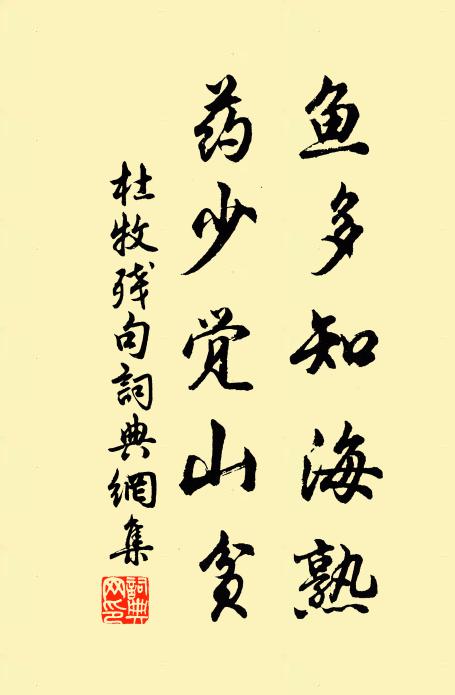 鱼多知海熟
药少觉山贫
杜牧残句詞典網集
詞典网印